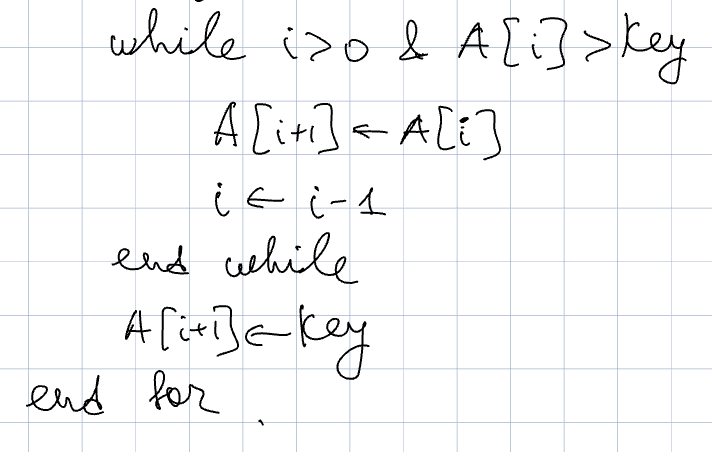 while i>0 & A[i]>key
A[i+1] ← A[i]
i ← i-1
end while
A[i+1] ← key
end for